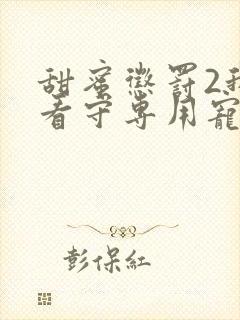 甜蜜懲罰2我
看守專用寵
彭保紅